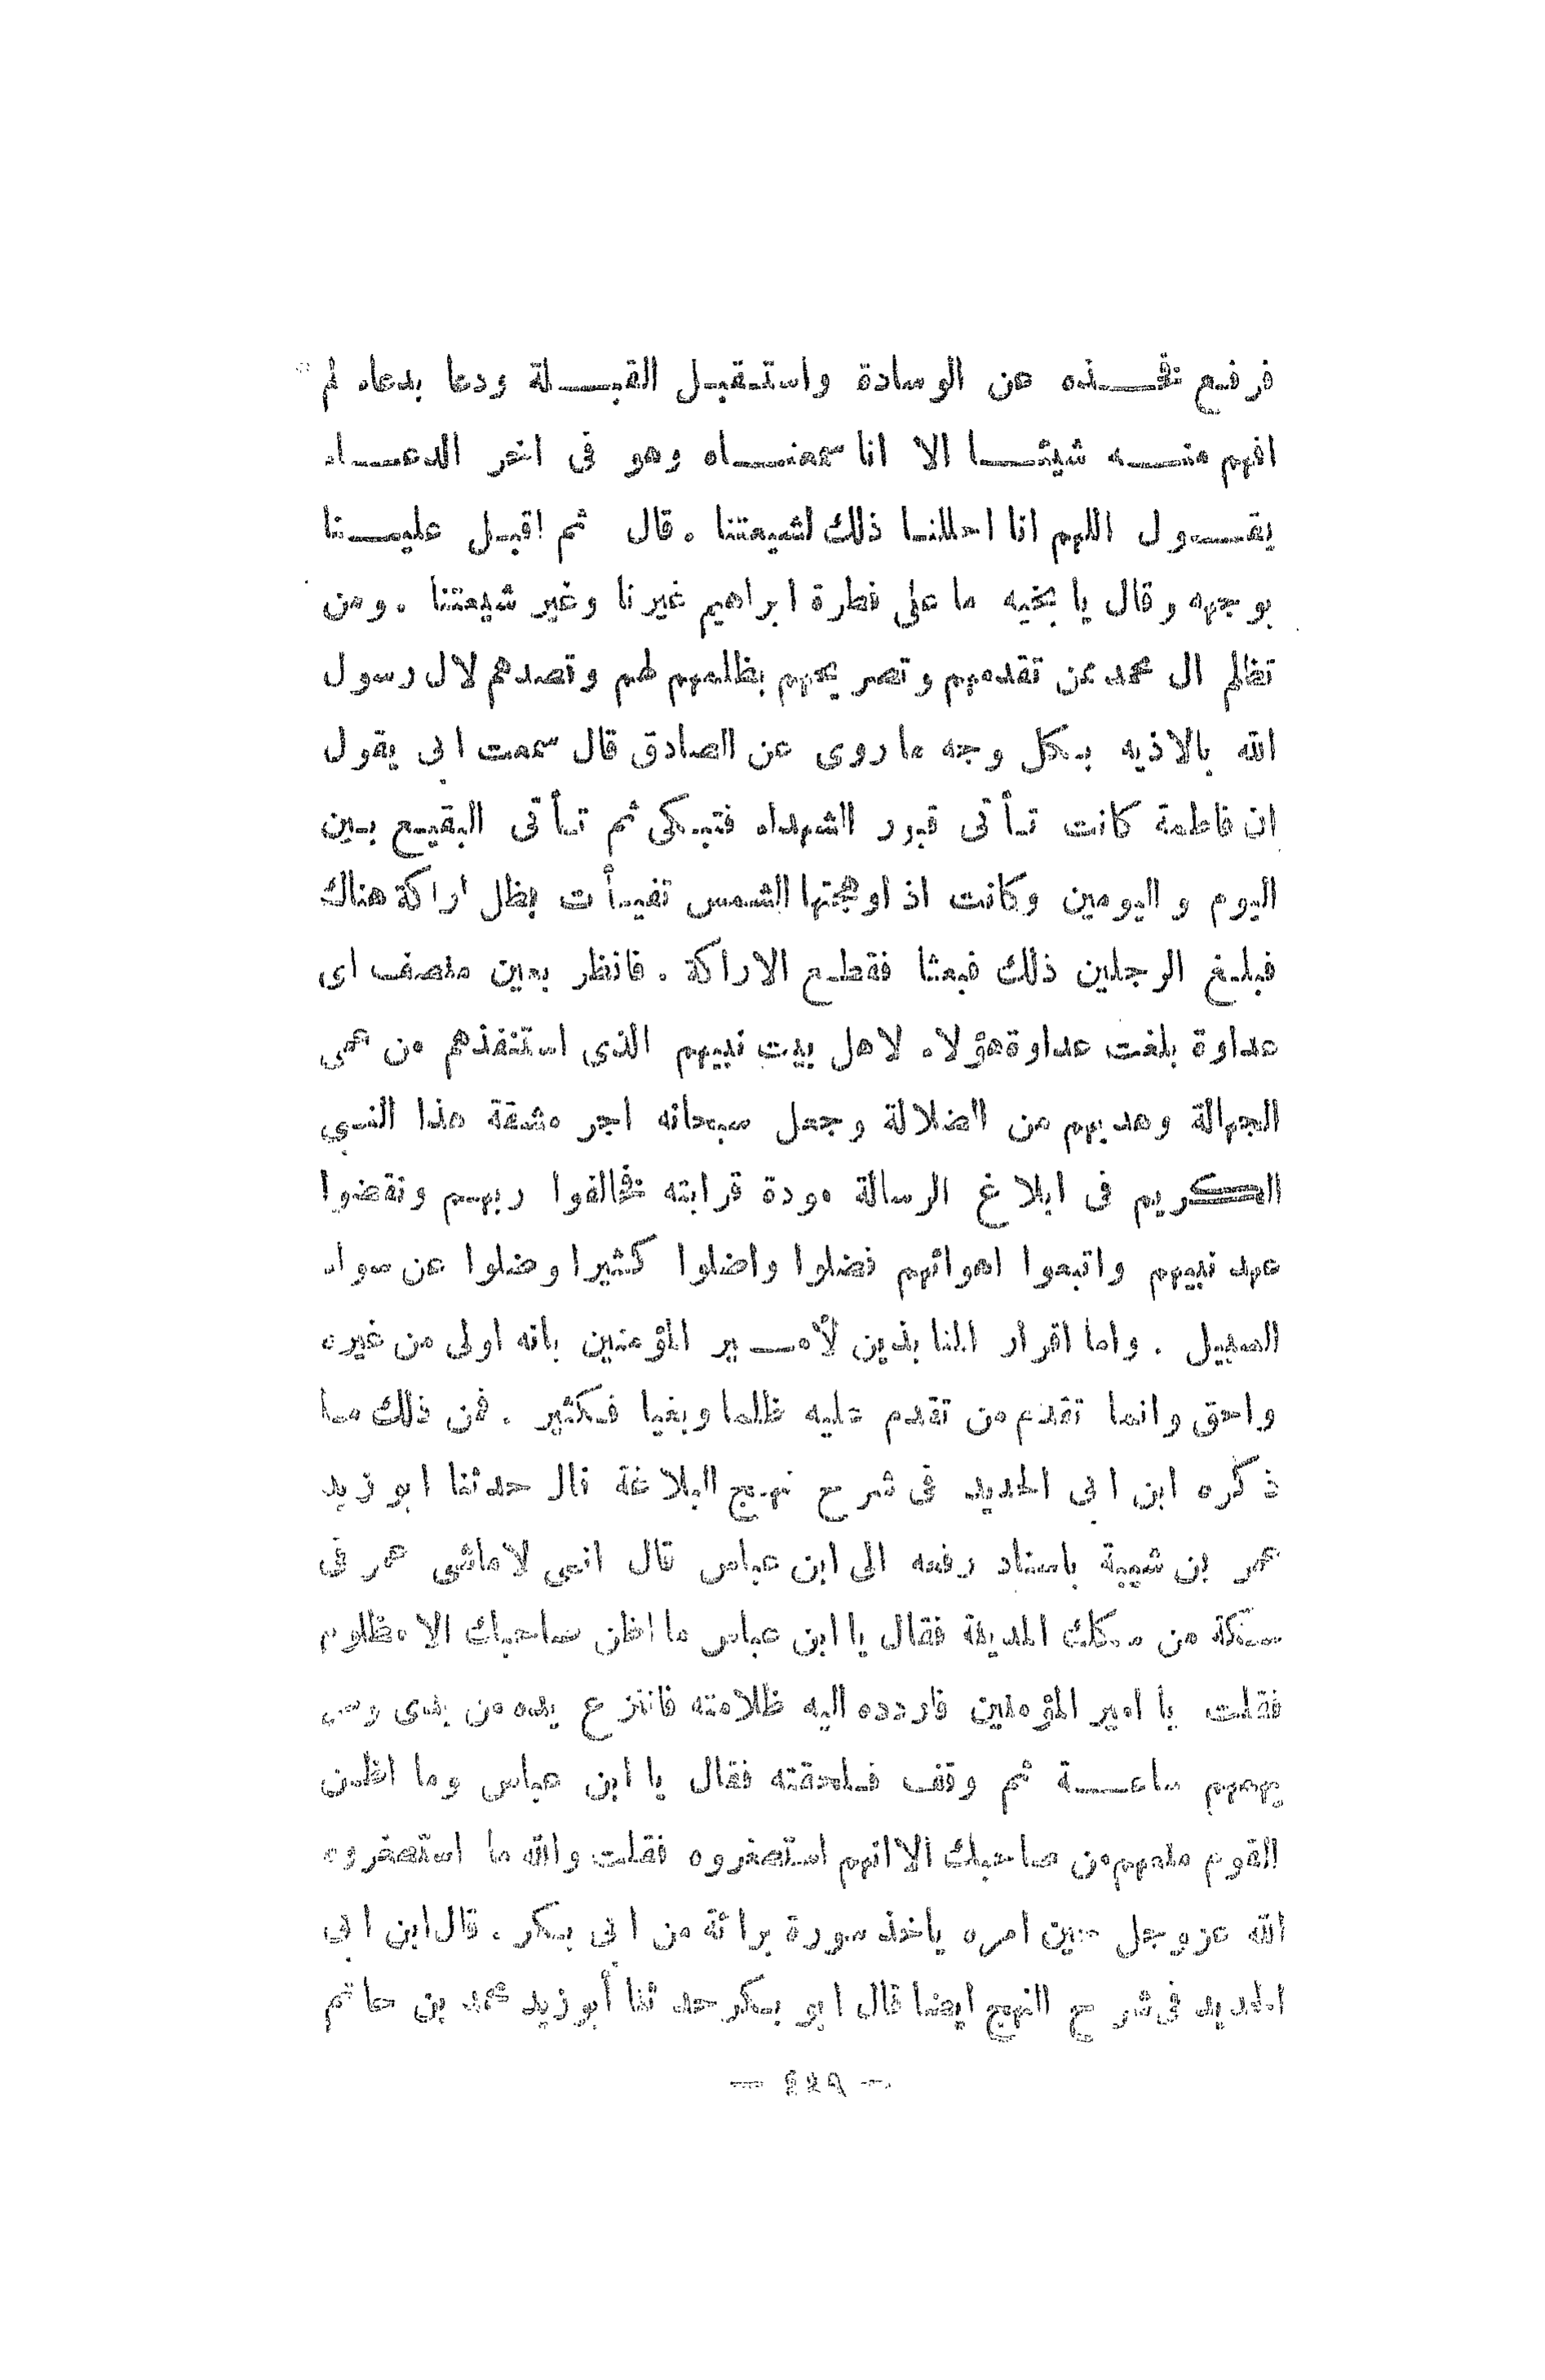 فرفع فخذه عن الوسادة واستقبل القبلة ودعا بدعاء لم
افهم منه شيئا الا انا سمعناه وهو فى اخر الدعاء
يقول اللهم انا احللنا ذلك لشيعتنا . قال ثم اقبل علينا
بوجهه وقال يا بخيه ما على فطرة ابراهيم غيرنا وغير شيعتنا . ومن
تظلم ال محمد عن تقدمهم وتصريحهم بظلمهم لهم وقصدهم لال رسول
الله بالاذيه بكل وجه ما روى عن الصادق قال سمعت ابى يقول
ان فاطمة كانت تأتى قبور الشهداء فتبكى ثم تأتى البقيع بين
اليوم و اليومين وكانت اذ اوهجتها الشمس تفيأت بظل اراكة هناك
فبلغ الرجلين ذلك فبعثا فقطع الاراكة . فانظر بعين منصف اى
عداوة بلغت عداوة هؤلاء لاهل بيت نبيهم الذى استنقذهم من عمى
الجهالة وهديهم من الضلالة وجعل سبحانه اجر مشقة هذا النبي
الكريم فى ابلاغ الرسالة مودة قرابته فخالفوا ربهم ونقضوا
عهد نبيهم واتبعوا اهوائهم فضلوا واضلوا كثيرا وضلوا عن سواء
السبيل . واما اقرار المنابذين لأمير المؤمنين بانه اولى من غيره
واحق وانما تقدم من تقدم عليه ظلما وبغيا فكثير . فمن ذلك ما
ذكره ابن ابى الحديد فى شرح نهج البلاغة قال حدثنا ابو زيد
عمر بن شيبة باسناد رفعه الى ابن عباس قال انى لاماشى عمر فى
سكة من سكك المدينة فقال يا ابن عباس ما اظن صاحبك الا مظلوم
فقلت يا امير المؤمنين فاردده اليه ظلامته فانتزع يده من يدى ومر
يهمهم ساعة ثم وقف فلحقته فقال يا ابن عباس وما اظن
القوم منعهم من صاحبك الا انهم استصغروه فقلت والله ما استصغروه
الله عز وجل حين امره ياخذ سورة برائة من ابى بكر . قال ابن ابى
الحديد فى شرح النهج ايضا قال ابو بكر حدثنا أبو زيد محمد بن حاتم
— ٤٤٩ —